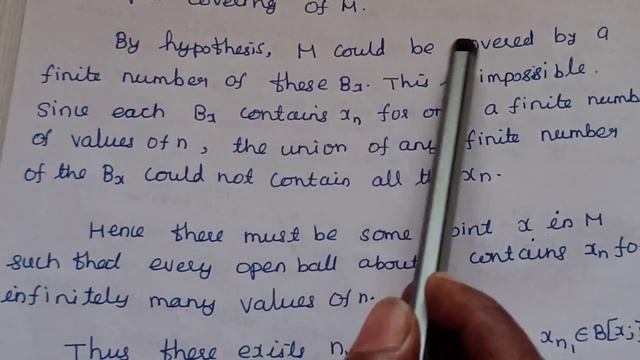 covering of M.
By hypothesis, M could be covered by a
finite number of these Bx. This impossible.
Since each Bx contains xn for a finite numb
of values of n, the union of any finite number
of the Bx could not contain all xn.
Hence there must be some point x in M
such that every open ball about contains xn fo
infinitely many values of n.
Thus there exists n
xn1 ∈ B[x;